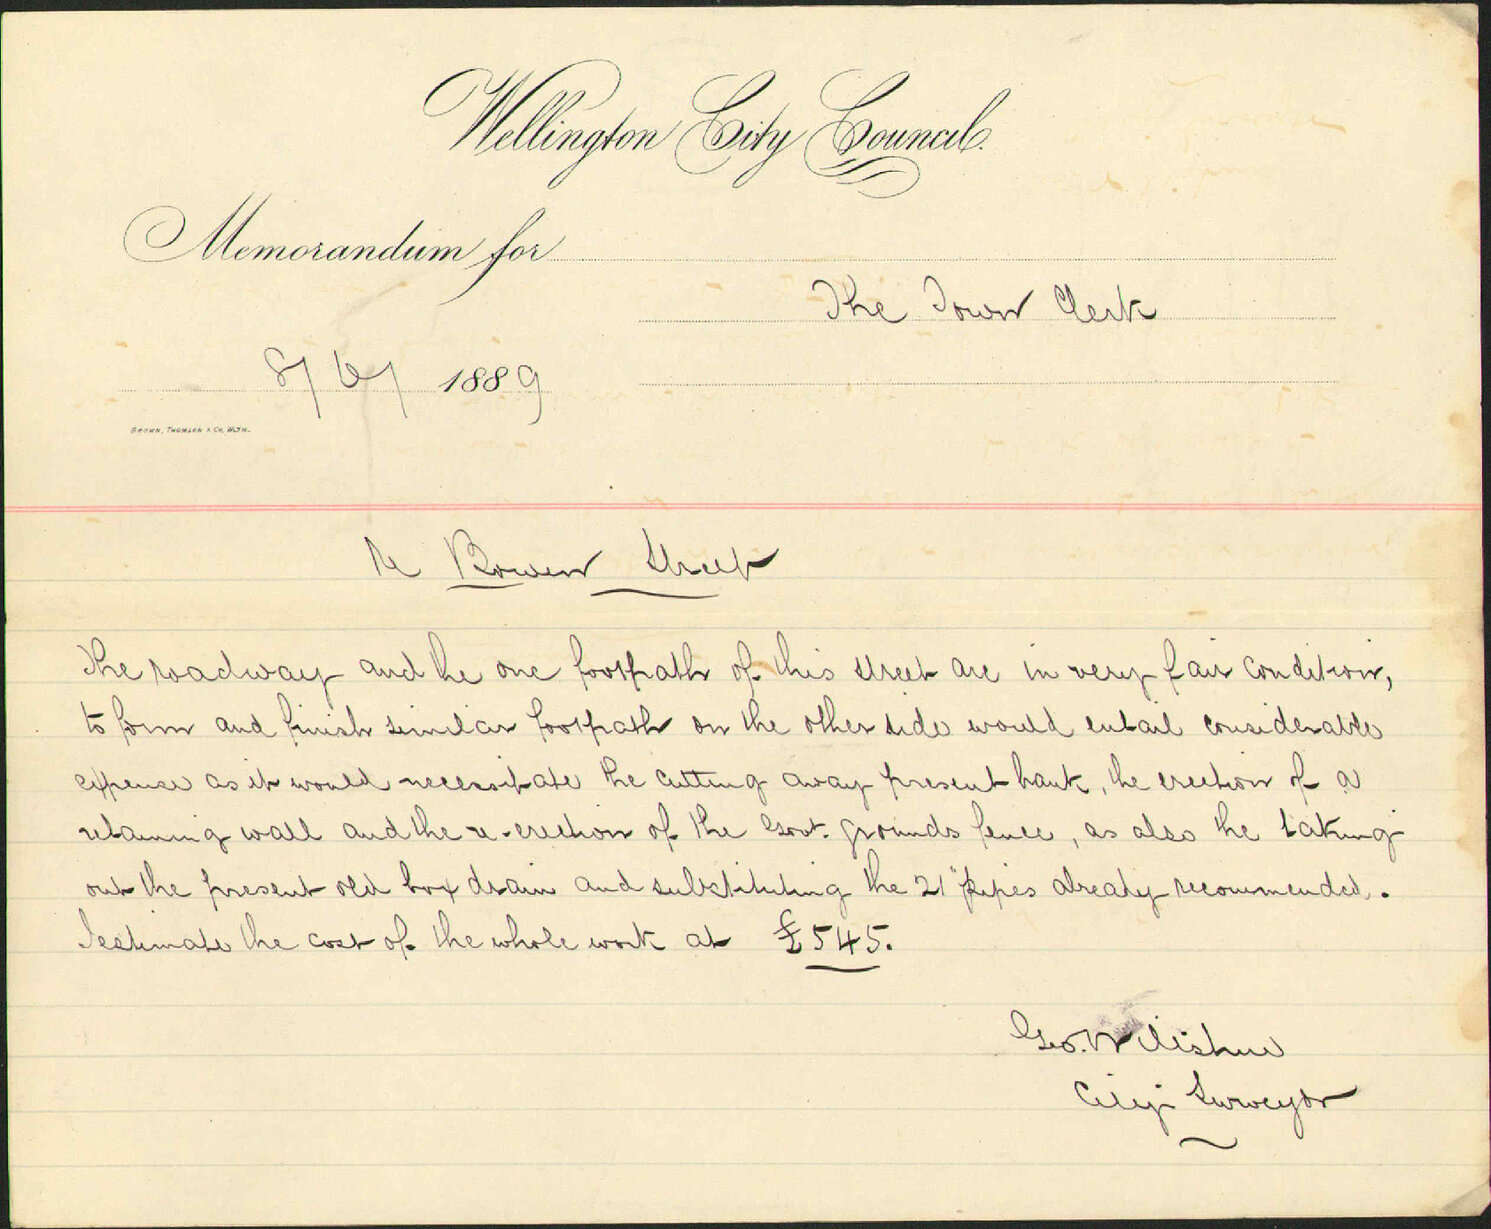 Wellington City Council.
Memorandum for
The Town Clerk
8/6/ 1889
BROWN, THOMSON & CO, WGTN.
Re Bowen Street
The roadway and the one footpath of this street are in very fair condition,
to form and finish similar footpath on the other side would entail considerable
expense as it would necessitate the cutting away present bank, the erection of a
retaining wall and the re-erection of the Govt. grounds fence, as also the taking
out the present old box drain and substituting the 21" pipes already recommended.
I estimate the cost of the whole work at £545.
Geo. Wiltshire
City Surveyor